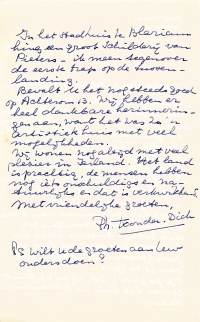 In het stadhuis te Blaricum
hing een groot schilderij van
Pieters - ik meen tegenover
de eerste trap op de tussen-
landing.
Bevalt u het nog steeds goed
op Achterom 13. Wij hebben er
heel dankbare herinnerin-
gen aan, want het was zo'n
artistiek huis met veel
mogelijkheden.
Wij wonen nog altijd met veel
plezier in Ierland. Het land
is prachtig, de mensen hebben
nog iets onschuldigs en na-
tuurlijks en dat is verkwikkend
Met vriendelijke groeten,
Ph.
PS Wilt u de groeten aan uw
ouders doen?